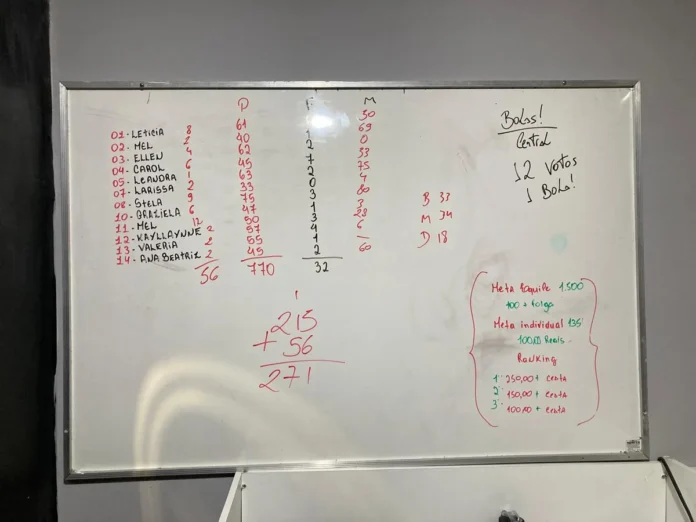 D M
01- LETICIA 8 61 1 50
02- MEL 2 40 2 69
03- ELLEN 4 62 7 0
04- CAROL 6 45 2 53
05- LEANDRA 1 63 0 75
07- LARISSA 2 33 3 4
08- STELA 9 75 1 80
10- GRAZIELA 6 47 3 3
11- MEL 12 50 4 28
12- KAYLLAYNNE 2 57 1 6
13- VALERIA 2 55 2 —
14- ANA BEATRIZ 2 45 60
56 770 32
215
+ 56
271
B 33
M 34
D 18
BoLos!
Central
12 Votos
1 BoLo!
Meta 1.500
100 + folga
Meta individual 135
100,00 Reais
Ranking
1° 250,00 + cesta
2° 150,00 + cesta
3° 100,00 + cesta